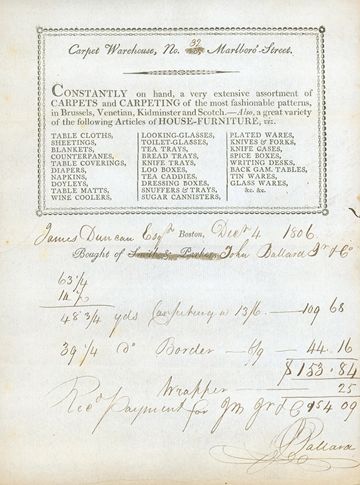 Carpet Warehouse, No. 39 Marlboro' Street.
CONSTANTLY on hand, a very extensive assortment of
CARPETS and CARPETING of the most fashionable patterns,
in Brussels, Venetian, Kidminster and Scotch.—Also, a great variety
of the following Articles of HOUSE-FURNITURE, viz.
TABLE CLOTHS,
SHEETINGS,
BLANKETS,
COUNTERPANES,
TABLE COVERINGS,
DIAPERS,
NAPKINS,
DOYLEYS,
TABLE MATTS,
WINE COOLERS,
LOOKING-GLASSES,
TOILET-GLASSES,
TEA TRAYS,
BREAD TRAYS,
KNIFE TRAYS,
LOO BOXES,
TEA CADDIES,
DRESSING BOXES,
SNUFFERS & TRAYS,
SUGAR CANNISTERS,
PLATED WARES,
KNIVES & FORKS,
KNIFE CASES,
SPICE BOXES,
WRITING DESKS,
BACK GAM. TABLES,
TIN WARES,
GLASS WARES,
&c. &c.
James Duncan Esqr Boston, Decr 4 1806.
Bought of Smith & Parker John Ballard Jr & Co
63 1/4
14 1/2
48 3/4 yds Carpeting @ 13/6 — 109 68
39 1/4 do Border — 6/9 — 44.16
$153.84
Wrapper — 25
Recd payment for 154 09
Ballard